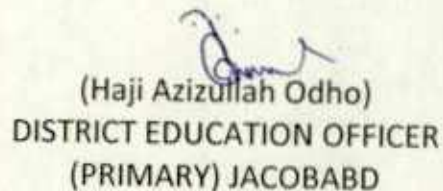 (Haji Azizullah Odho)
DISTRICT EDUCATION OFFICER
(PRIMARY) JACOBABD